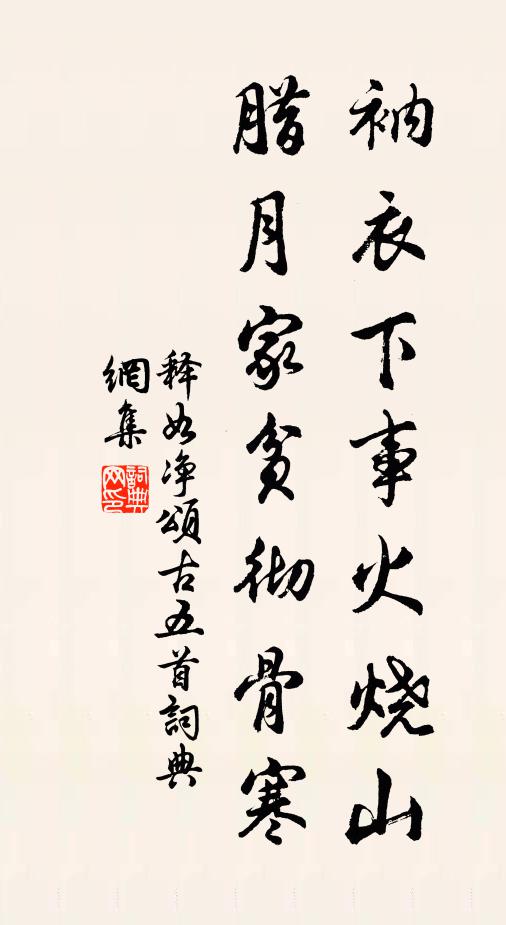 衲衣下事火烧山
腊月家贫彻骨寒
释如净颂古五首詞典
網集
詞典
网印